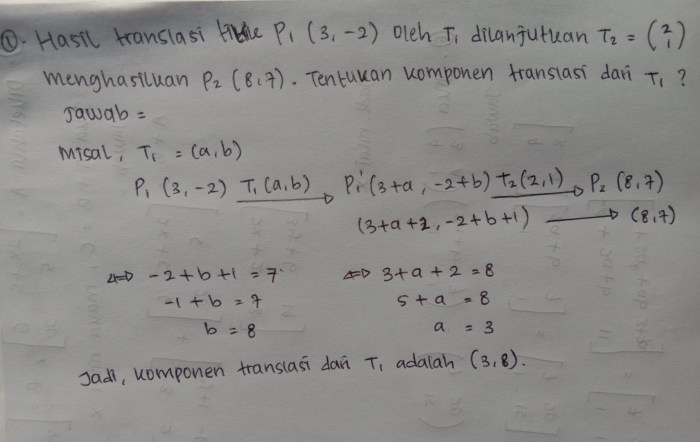 ①. Hasil translasi P₁ (3, -2) oleh T₁ dilanjutkan T₂ = (2 1)
menghasilkan P₂ (8,7). Tentukan komponen translasi dari T₁ ?
Jawab =
Misal, T₁ = (a,b)
P₁ (3, -2) T₁(a,b) → P₁'(3+a, -2+b) T₂(2,1) → P₂ (8,7)
(3+a+2, -2+b+1) → (8,7)
⟺ -2+b+1 = 7 ⟺ 3+a+2 = 8
-1+b = 7 5+a = 8
b = 8 a = 3
Jadi, komponen translasi dari T₁ adalah (3,8).